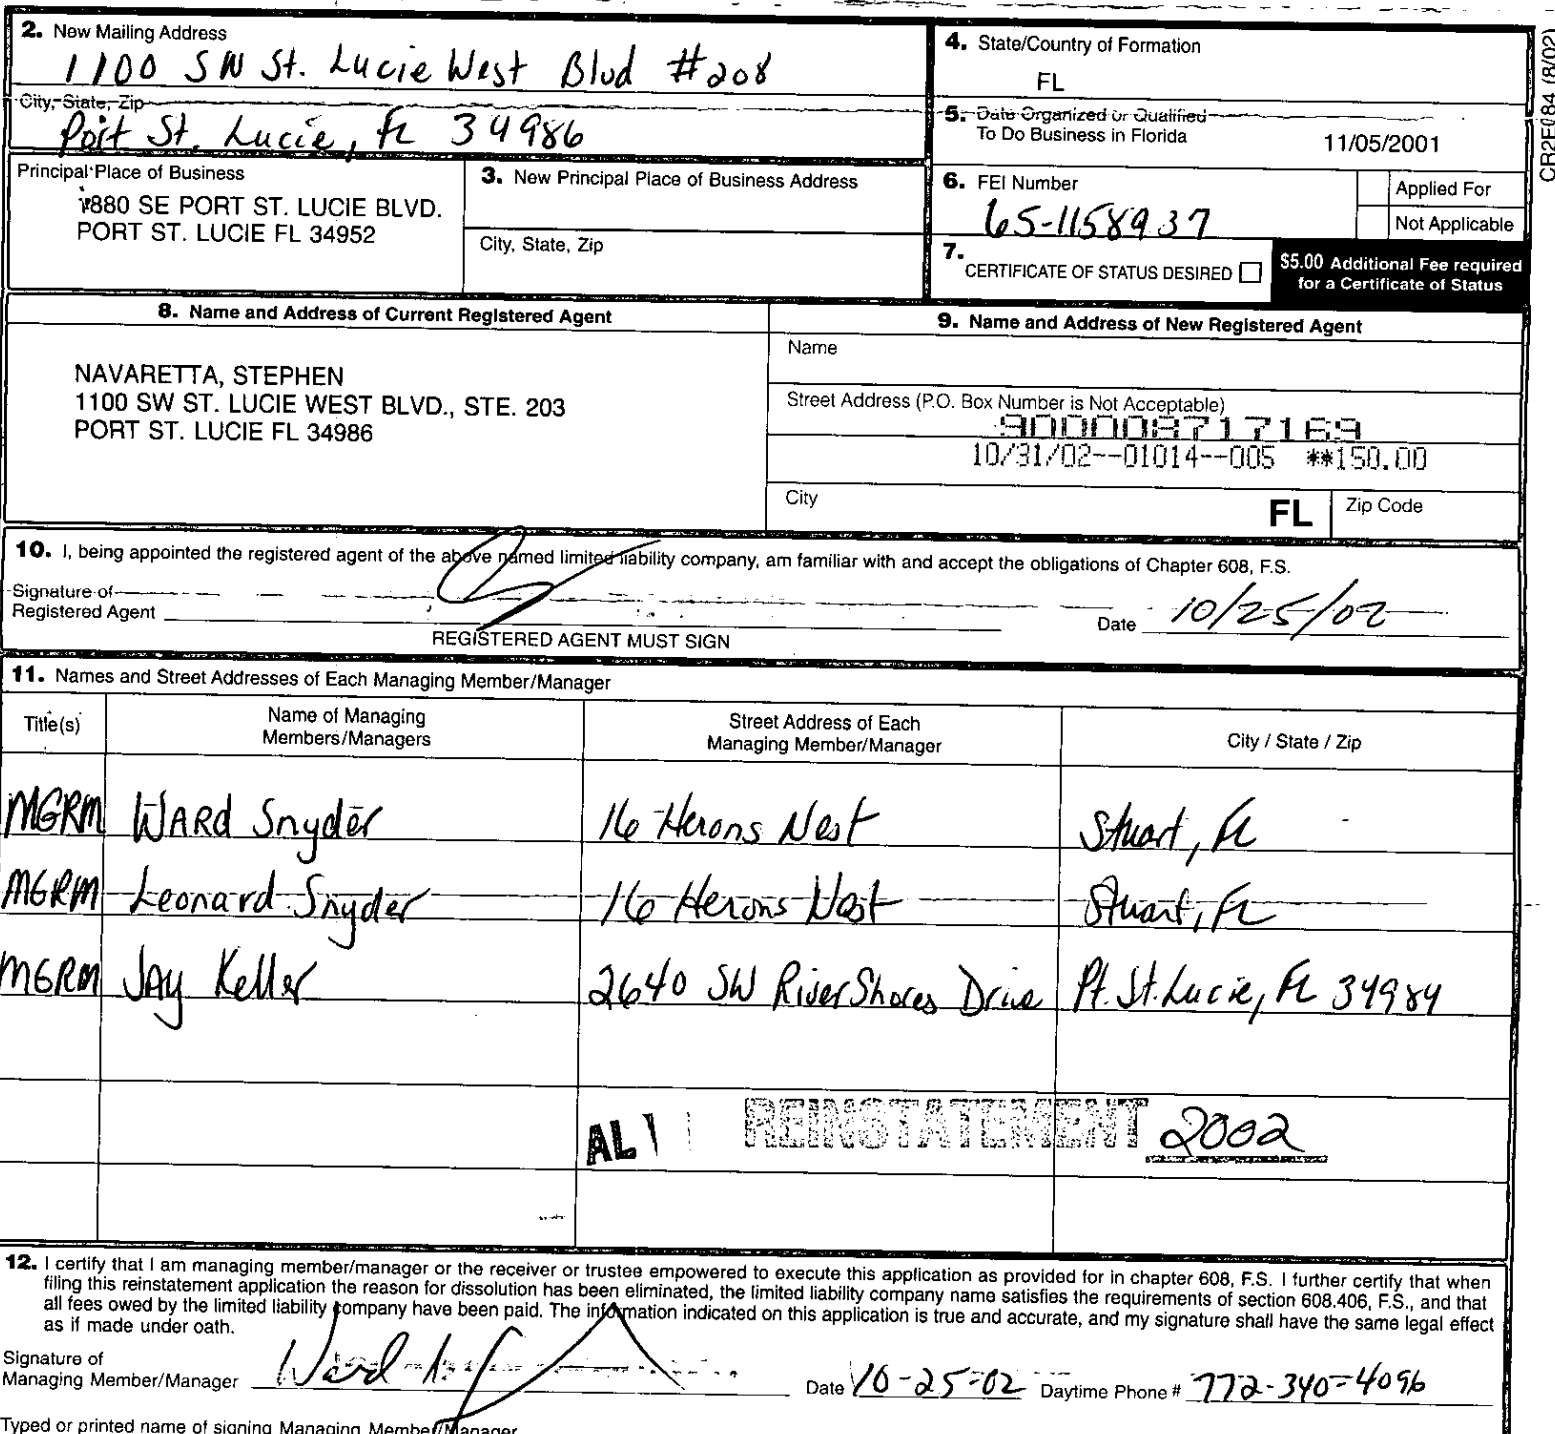 2. New Mailing Address
1100 SW St. Lucie West Blvd #208
City, State, Zip
Port St. Lucie, FL 34986
4. State/Country of Formation
FL
5. Date Organized or Qualified
To Do Business in Florida 11/05/2001
CR2E084 (8/02)
Principal Place of Business
1880 SE PORT ST. LUCIE BLVD.
PORT ST. LUCIE FL 34952
3. New Principal Place of Business Address
City, State, Zip
6. FEI Number
65-1158937
Applied For
Not Applicable
7. CERTIFICATE OF STATUS DESIRED
$5.00 Additional Fee required
for a Certificate of Status
8. Name and Address of Current Registered Agent
NAVARETTA, STEPHEN
1100 SW ST. LUCIE WEST BLVD., STE. 203
PORT ST. LUCIE FL 34986
9. Name and Address of New Registered Agent
Name
Street Address (P.O. Box Number is Not Acceptable)
900008717169
10/31/02--01014--005 **150.00
City FL Zip Code
10. I, being appointed the registered agent of the above named limited liability company, am familiar with and accept the obligations of Chapter 608, F.S.
Signature of
Registered Agent Date 10/25/02
REGISTERED AGENT MUST SIGN
11. Names and Street Addresses of Each Managing Member/Manager
Title(s) Name of Managing Members/Managers Street Address of Each Managing Member/Manager City / State / Zip
MGRM WARD Snyder 16 Herons Nest Stuart, FL
MGRM Leonard Snyder 16 Herons Nest Stuart, FL
MGRM JAY Keller 2640 SW River Shores Drive Pt. St. Lucie, FL 34984
AL REINSTATEMENT 2002
12. I certify that I am managing member/manager or the receiver or trustee empowered to execute this application as provided for in chapter 608, F.S. I further certify that when
filing this reinstatement application the reason for dissolution has been eliminated, the limited liability company name satisfies the requirements of section 608.406, F.S., and that
all fees owed by the limited liability company have been paid. The information indicated on this application is true and accurate, and my signature shall have the same legal effect
as if made under oath.
Signature of
Managing Member/Manager Ward Date 10-25-02 Daytime Phone # 772-340-4096
Typed or printed name of signing Managing Member/Manager